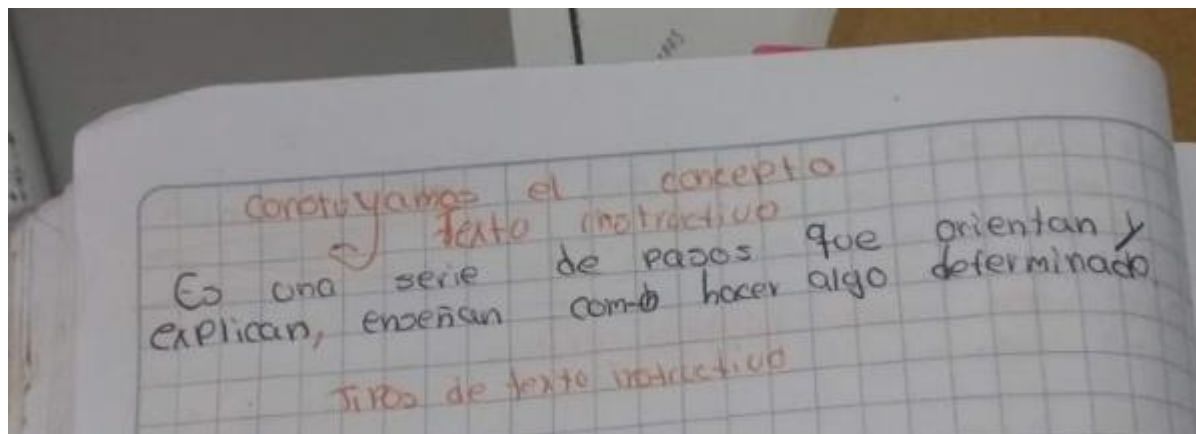 Construyamos el concepto
Texto instructivo
Es una serie de pasos que orientan y
explican, enseñan como hacer algo determinado
Tipos de texto instructivo